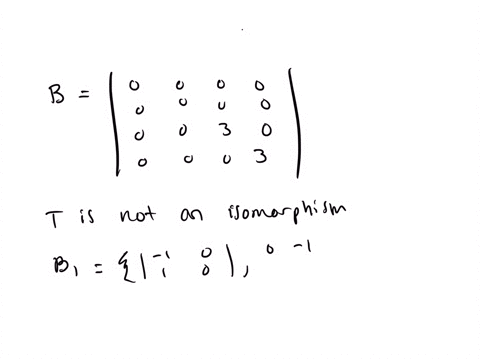 B = | 0 0 0 0
0 0 0 0
0 0 3 0
0 0 0 3 |
T is not an isomorphism
B1 = { | -1 0
1 0 | , 0 -1